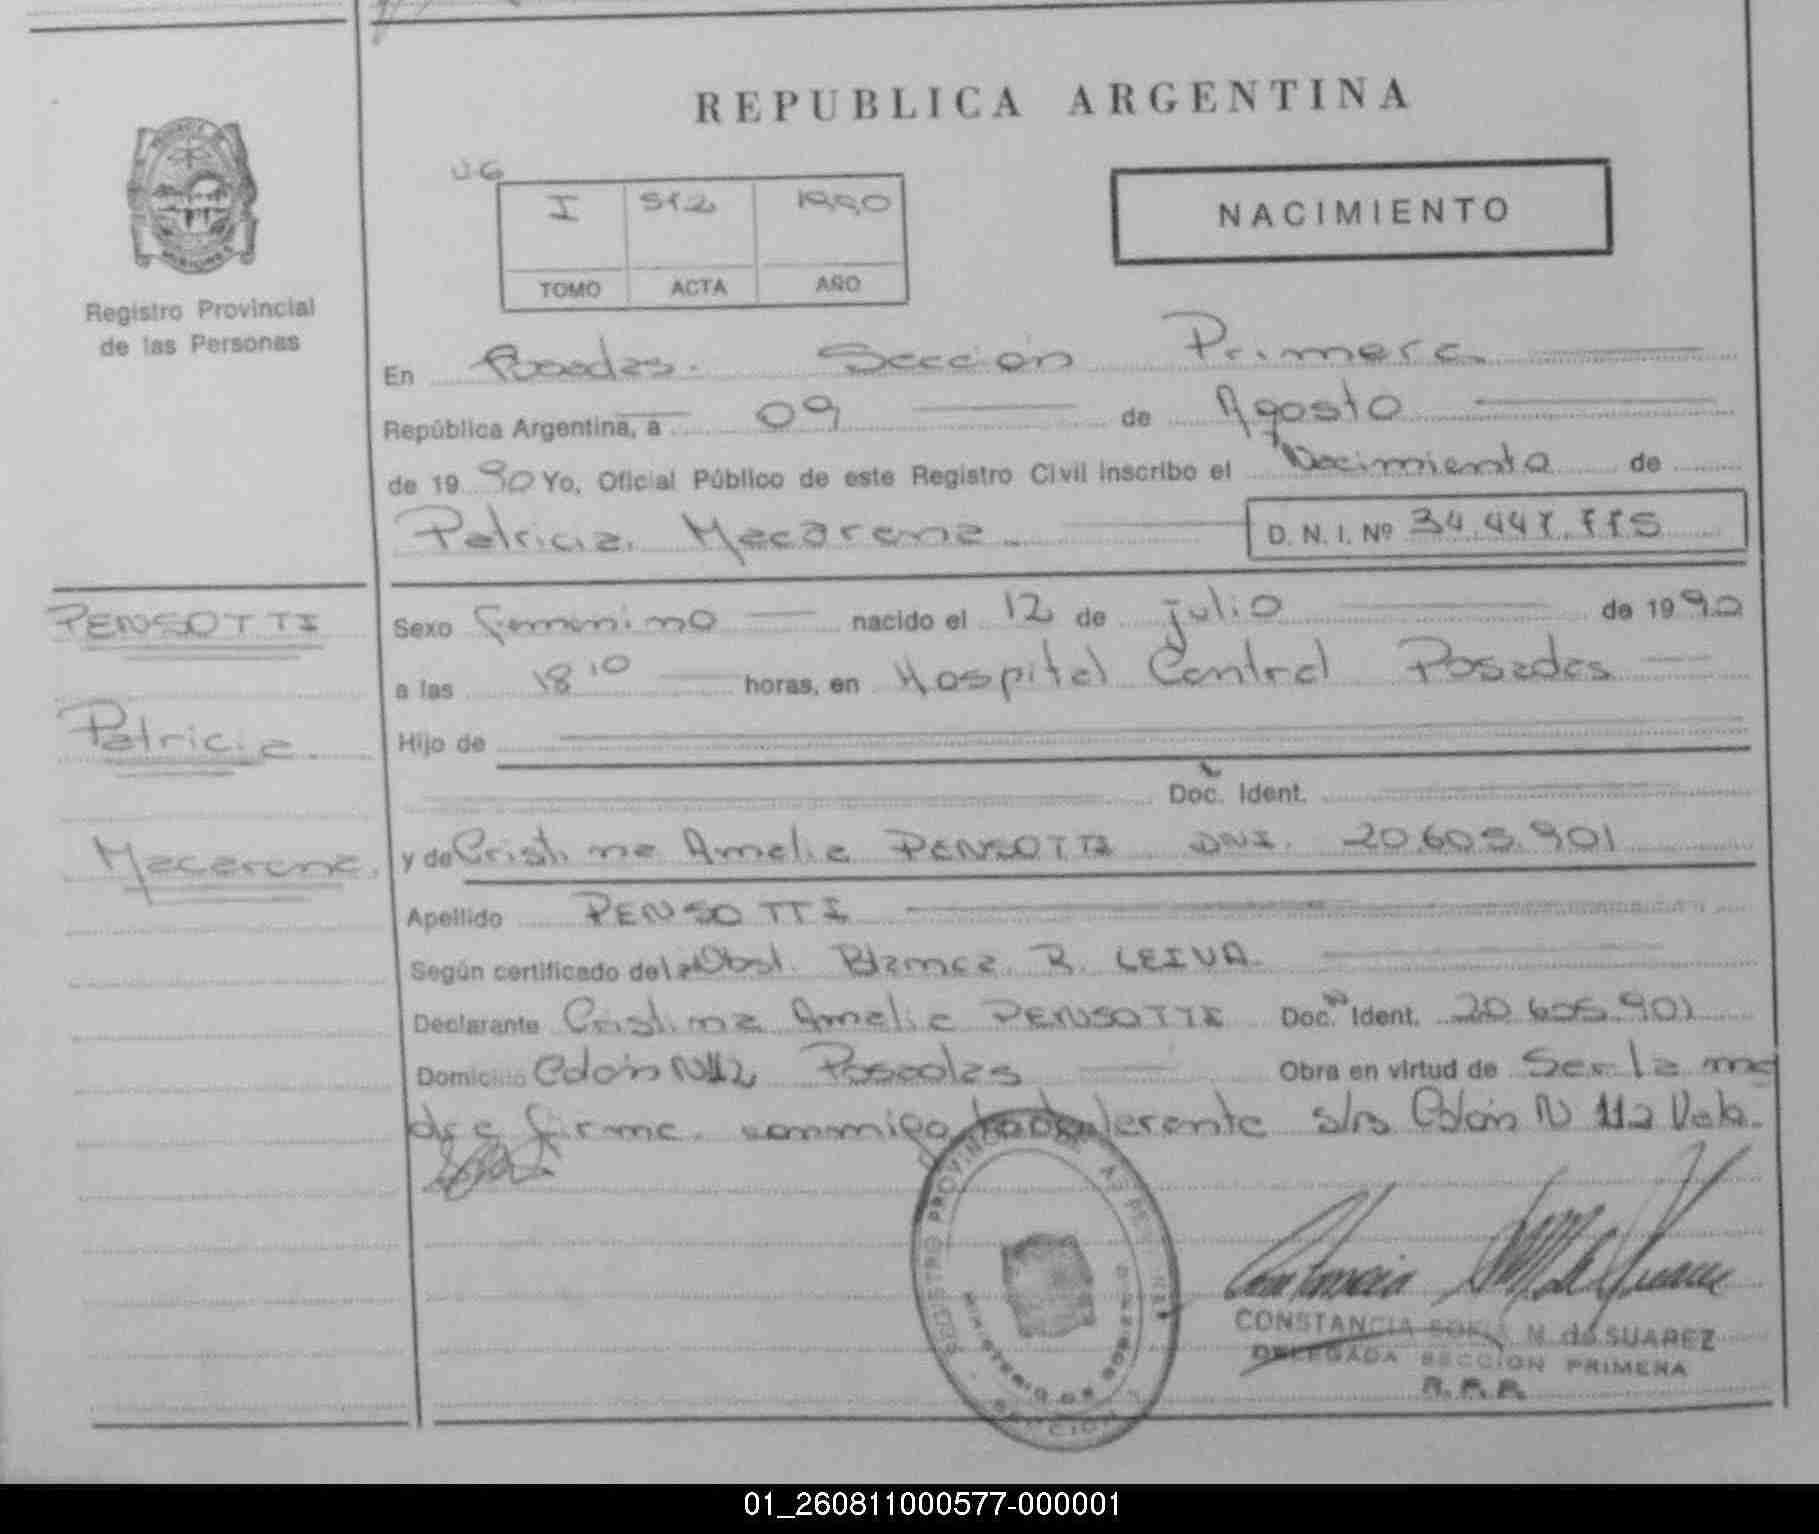 REPUBLICA ARGENTINA
Registro Provincial
de las Personas
I 512 1990
TOMO ACTA AÑO
NACIMIENTO
En Posadas. Sección Primera
República Argentina, a 09 de Agosto
de 1990 Yo, Oficial Público de este Registro Civil inscribo el Nacimiento de
Patricia Macarena D. N. I. Nº
PENSOTTI
Patricia
Macarena.
Sexo femenino nacido el 12 de julio de 1990
a las 18 10 horas, en Hospital Central Posadas
Hijo de
Doc. Ident.
y de Cristina Amelia PENSOTTI DNI. 20.605.901
Apellido PENSOTTI
Según certificado de la Obst. Blanca R. LEIVA.
Declarante Cristina Amelia PENSOTTI Doc. Ident. 20.605.901
Domicilio Colón N112 Posadas Obra en virtud de Ser la ma
dre firma conmigo Colón N 112 Vale.
REGISTRO PROVINCIAL DE LAS PERSONAS
MINISTERIO DE GOBIERNO
SECCION
CONSTANCIA SOFIA M. de SUAREZ
DELEGADA SECCION PRIMERA
R. P. P.
01_260811000577-000001